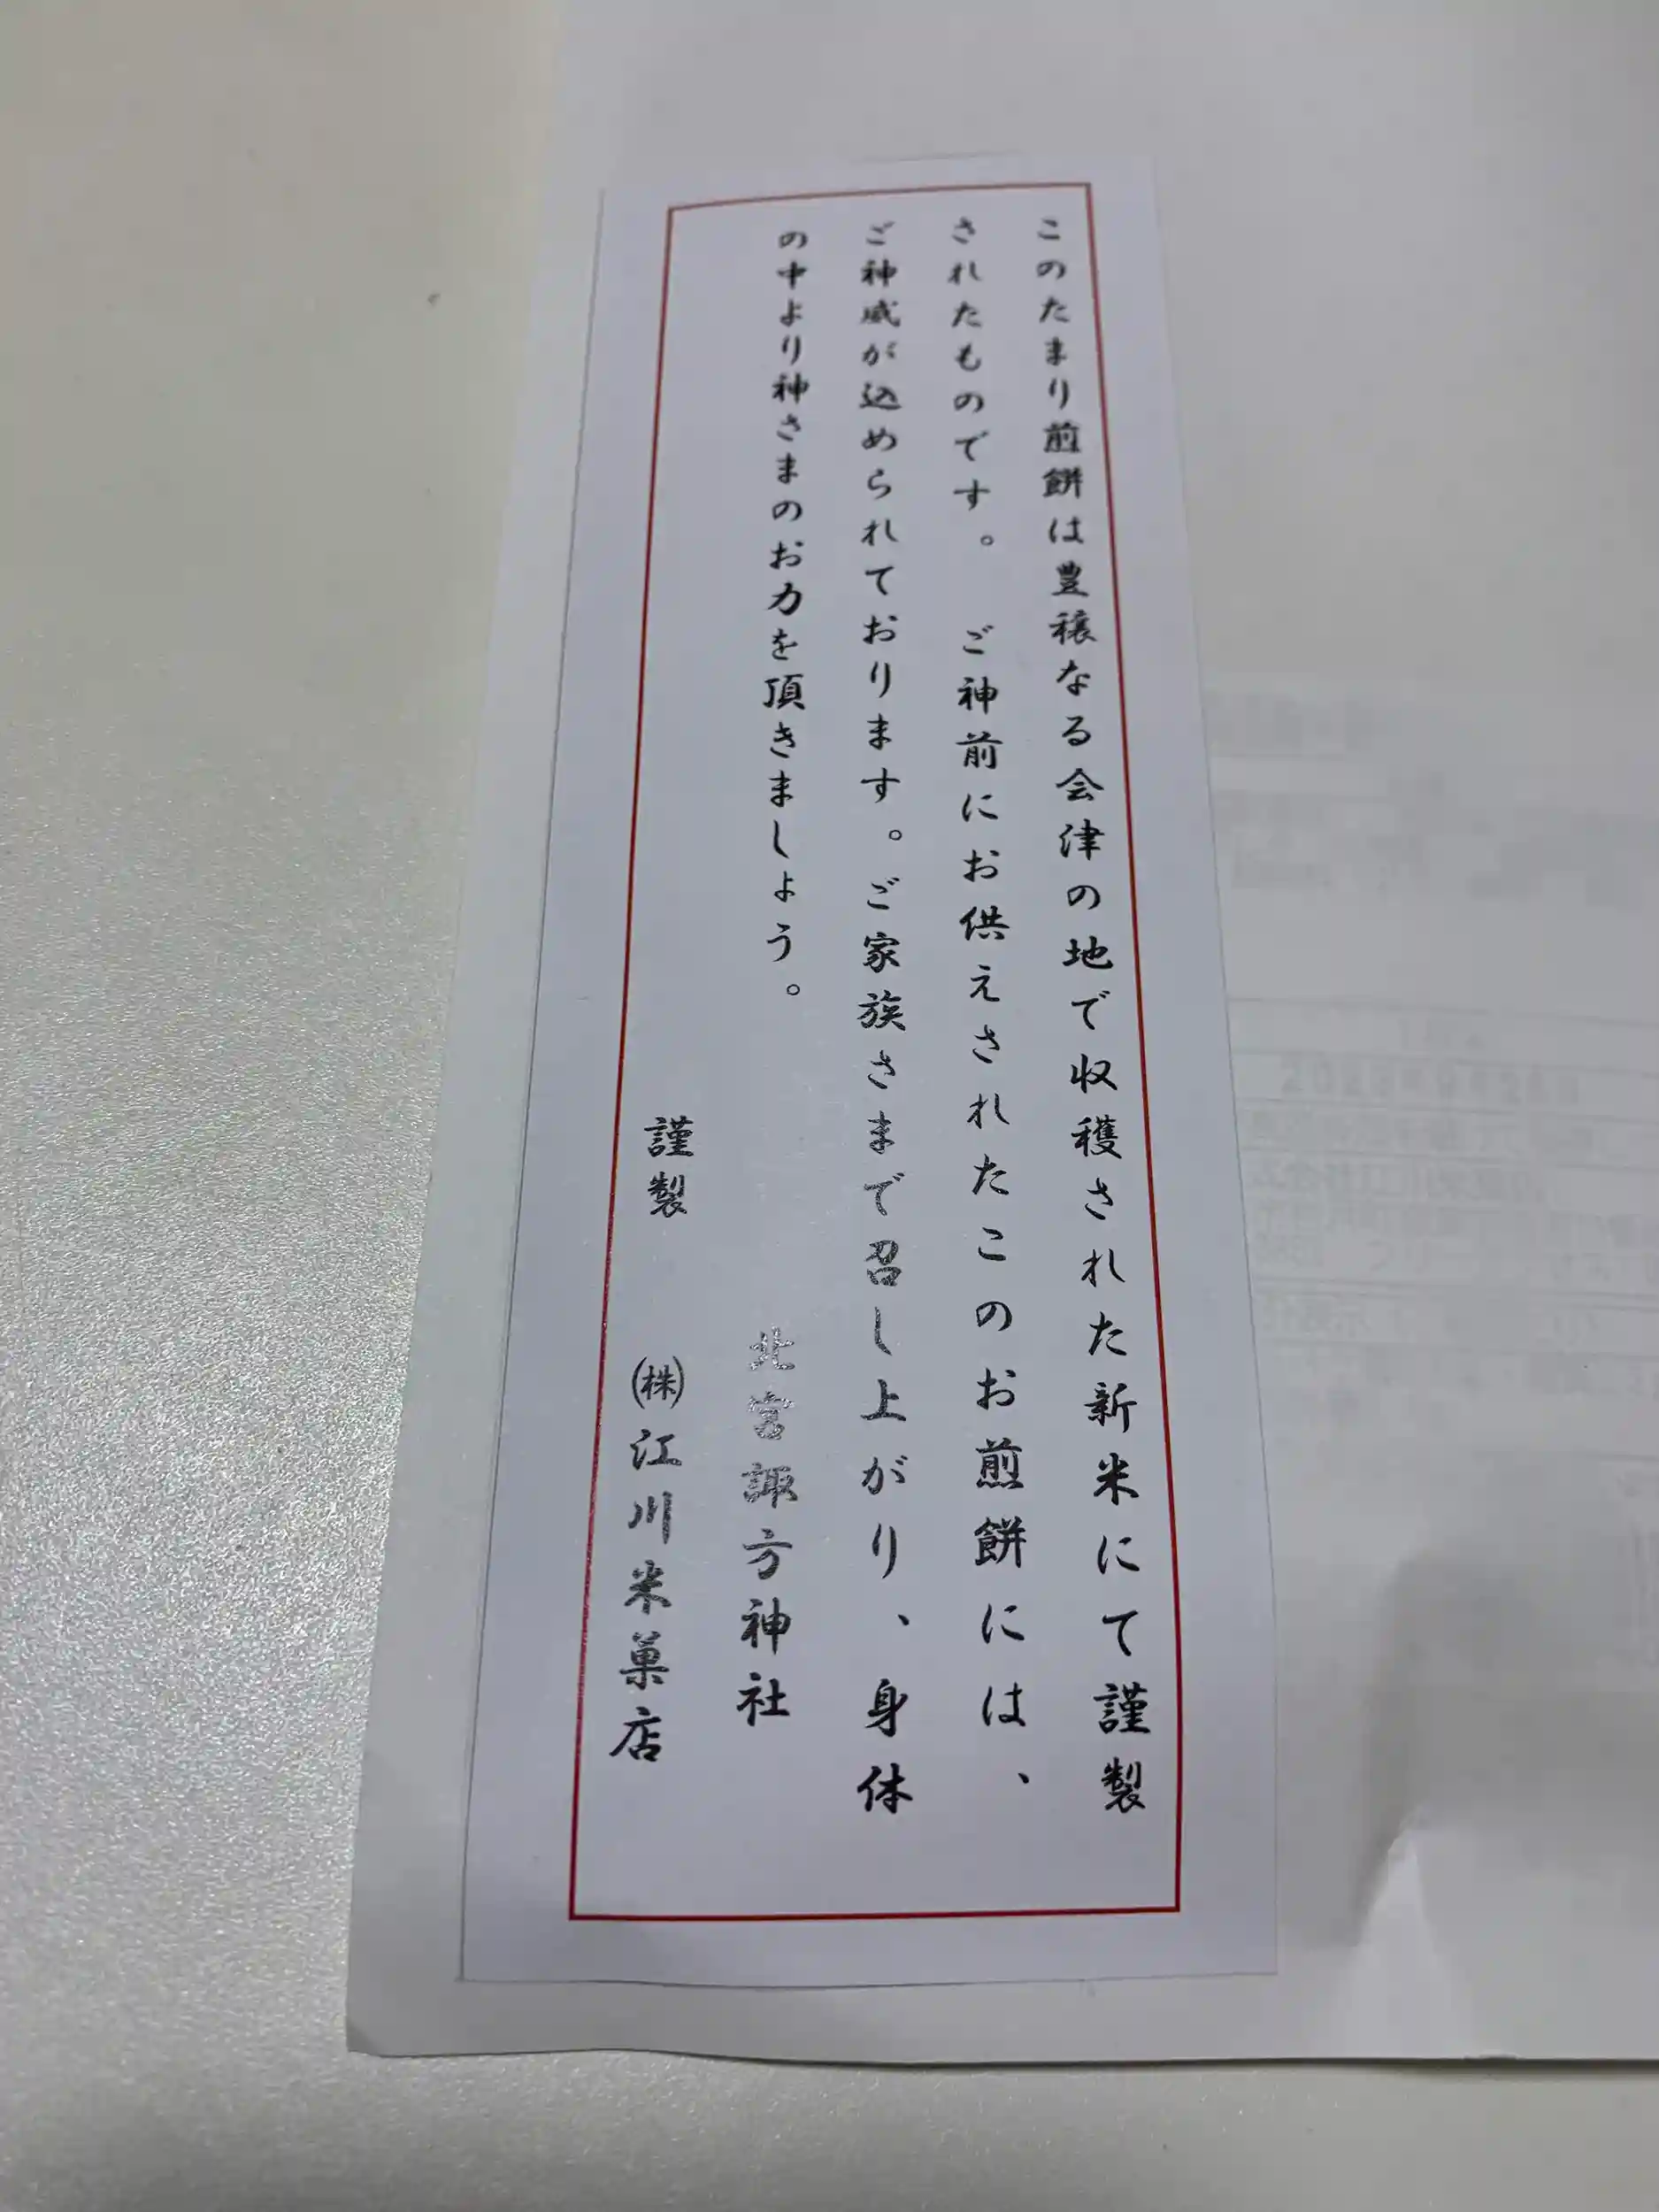 このたまり煎餅は豊穣なる会津の地で収穫された新米にて謹製
されたものです。　ご神前にお供えされたこのお煎餅には、
ご神威が込められております。ご家族さまで召し上がり、身体
の中より神さまのお力を頂きましょう。
北宮諏方神社
謹製　㈱江川米菓店